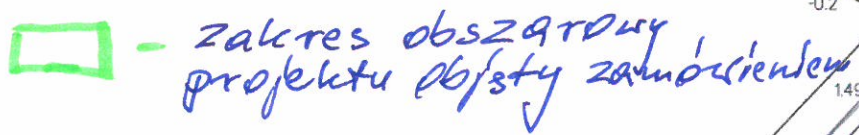 - zakres obszarowy
projektu objęty zamówieniem
-0.2
149